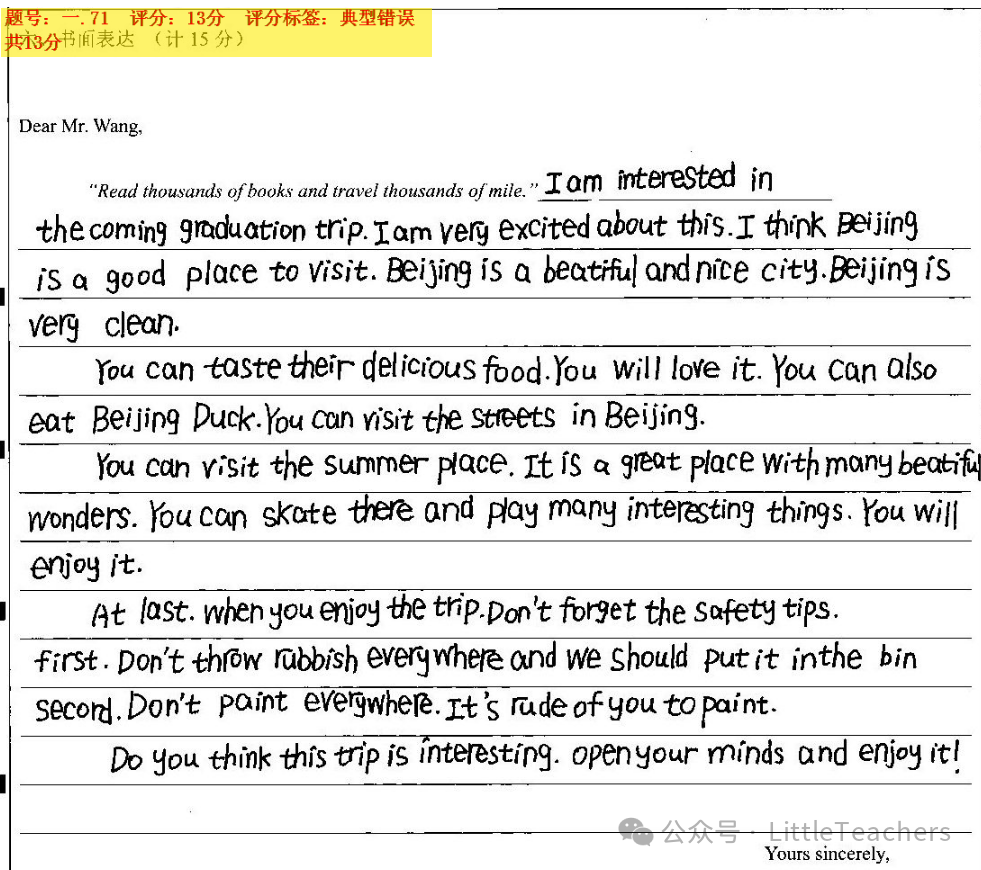 题号：一.71 评分：13分 评分标签：典型错误
共13分 书面表达 （计 15 分）
Dear Mr. Wang,
“Read thousands of books and travel thousands of mile.” I am interested in
the coming graduation trip. I am very excited about this. I think Beijing
is a good place to visit. Beijing is a beatiful and nice city. Beijing is
very clean.
You can taste their delicious food. You will love it. You can also
eat Beijing Duck. You can visit the streets in Beijing.
You can visit the summer place. It is a great place with many beatiful
wonders. You can skate there and play many interesting things. You will
enjoy it.
At last. when you enjoy the trip. Don't forget the safety tips.
first. Don't throw rubbish everywhere and we should put it in the bin
second. Don't paint everywhere. It's rude of you to paint.
Do you think this trip is interesting. open your minds and enjoy it!
公众号 · LittleTeachers
Yours sincerely,